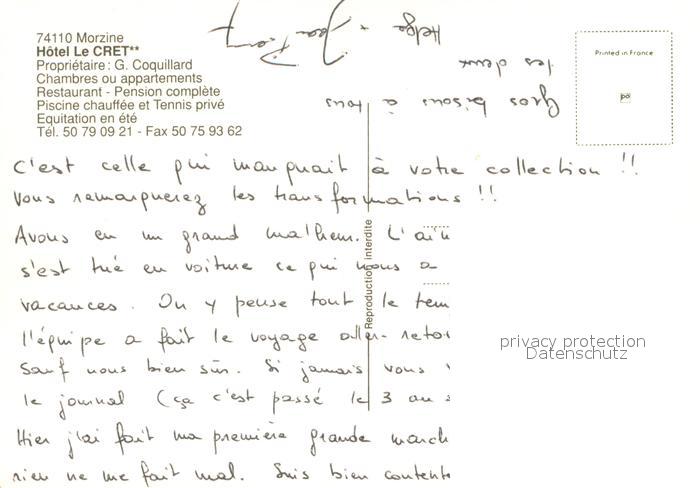 74110 Morzine
Hôtel Le CRET**
Propriétaire: G. Coquillard
Chambres ou appartements
Restaurant - Pension complète
Piscine chauffée et Tennis privé
Equitation en été
Tél. 50 79 09 21 - Fax 50 75 93 62
Printed in France
c'est celle qui manquait à votre collection !!
Vous remarquerez les transformations !!
Avons eu un grand malheur. L'
s'est tué en voiture ce qui nous a
vacances. On y pense tout le
l'équipe a fait le voyage aller-
Sauf nous bien sûr. Si jamais vous
le journal (ça c'est passé le 3 au
Hier j'ai fait ma première grande
rien ne me fait mal. Suis bien
Gros bisous à tous
les deux
Helga + Jean Pierre
Reproduction interdite
privacy protection
Datenschutz